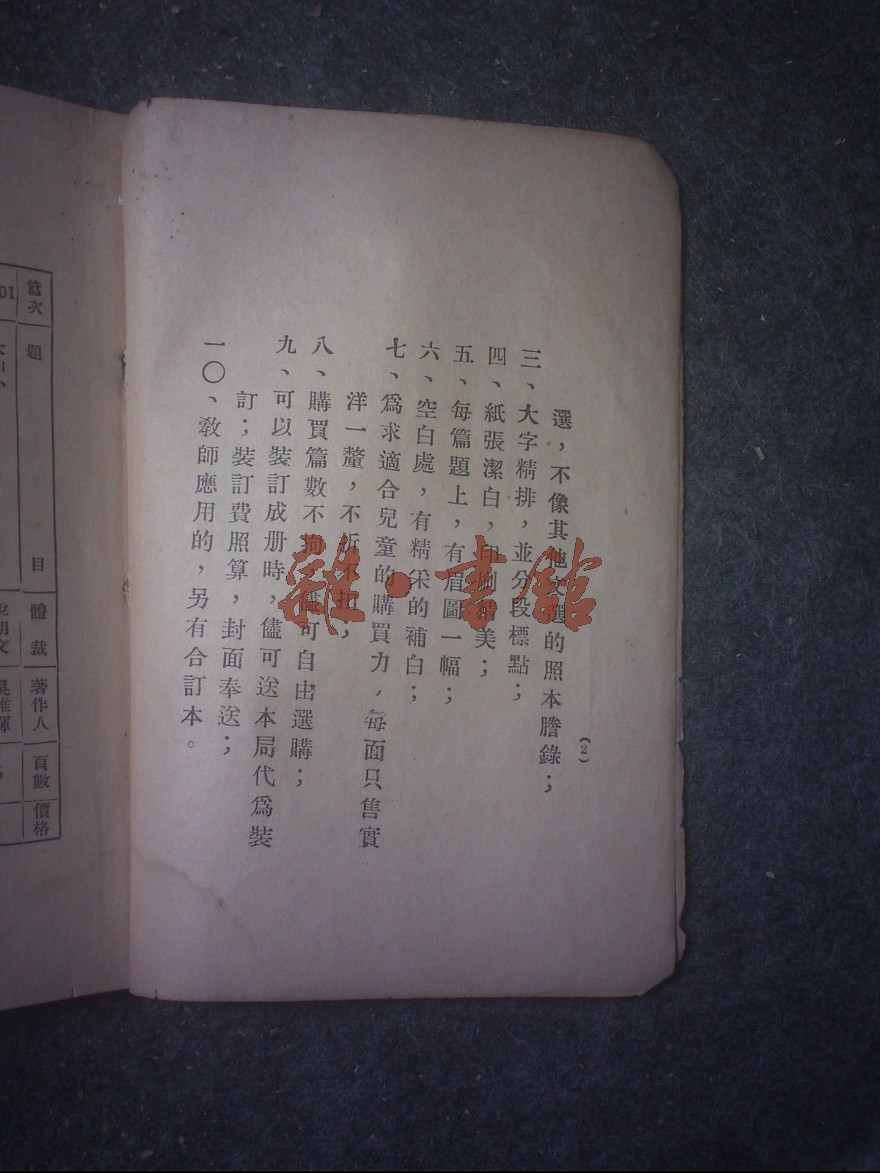 (2)
選，不像其他文選的照本謄錄；
三、大字精排，並分段標點；
四、紙張潔白，印刷精美；
五、每篇題上，有眉圖一幅；
六、空白處，有精采的補白；
七、爲求適合兒童的購買力，每面只售實
洋一釐，不折不扣，
八、購買篇數不拘，儘可自由選購；
九、可以裝訂成册時，儘可送本局代爲裝
訂；裝訂費照算，封面奉送；
一〇、敎師應用的，另有合訂本。
篇次
題目
體裁
著作人
頁數
價格
01
雜·書館